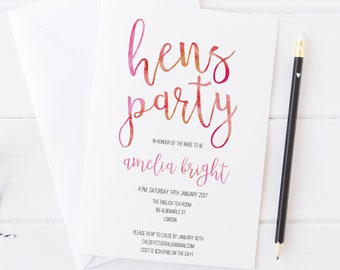 hens
party
IN HONOUR OF THE BRIDE TO BE
amelia bright
4 PM, SATURDAY 14TH JANUARY 2017
THE ENGLISH TEA ROOM
LONDON
PLEASE RSVP TO CHLOE BY JANUARY
COST IS £34 (PAID ON THE DAY)